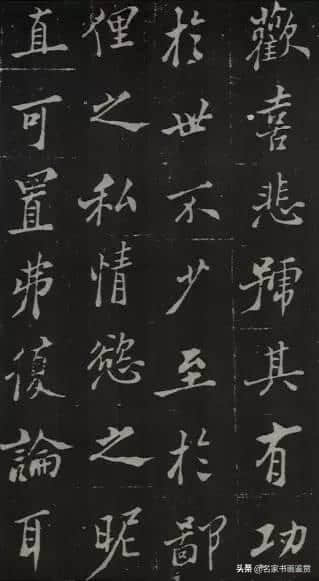 歡喜悲號其有功
於世不少至於鄙
俚之私情慾之昵
直可置弗復論耳
头条 @名家书画鉴赏